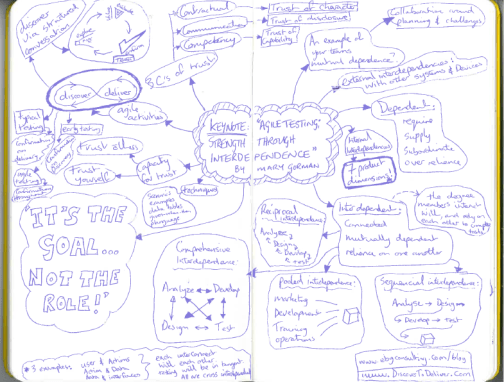 discover
via structured
conversation
Contractual
Communication
Competency
3 C's of trust
Trust of character
Trust of disclosure
Trust of
Capability
Collaboration round
planning & challenges.
An example of
your teams
mutual dependence?
External interdependencies:
With other systems & Devices
discover
deliver
agile
activities
early testing
typical
testing
Confirmation
on
delivery
agile
testing
trust others
Trust
Yourself
Capacity
for trust
techniques
Scenarios
examples
data tables
language
KEYNOTE: "AGILE TESTING:
STRENGTH THROUGH
INTERDEPENDENCE"
BY MARY GORMAN
Dependent:
require
Supply
Subordinate
over reliance
Internal
Interdependencies
7 product
dimensions
"IT'S THE
GOAL...
NOT THE
ROLE!"
Reciprocal
interdependence:
Analyse
Design
Develop
test
Interdependent:
Connected
Mutually dependent
reliance on one another
the degree
members interact
with, and rely on
each other to complete
tasks
Comprehensive
Interdependence:
Analyse
Develop
Design
Test
Pooled interdependence:
marketing
Development
Training
operations
Sequential interdependence:
Analyse → Design
→ Develop → test
* 3 examples:
user & Actions
Action & Data
data & interfaces
each interconnect
with each other
testing will be in tangent
as are cross interdependent
www.ebgconsulting.com/blog
www.DiscoverToDeliver.com